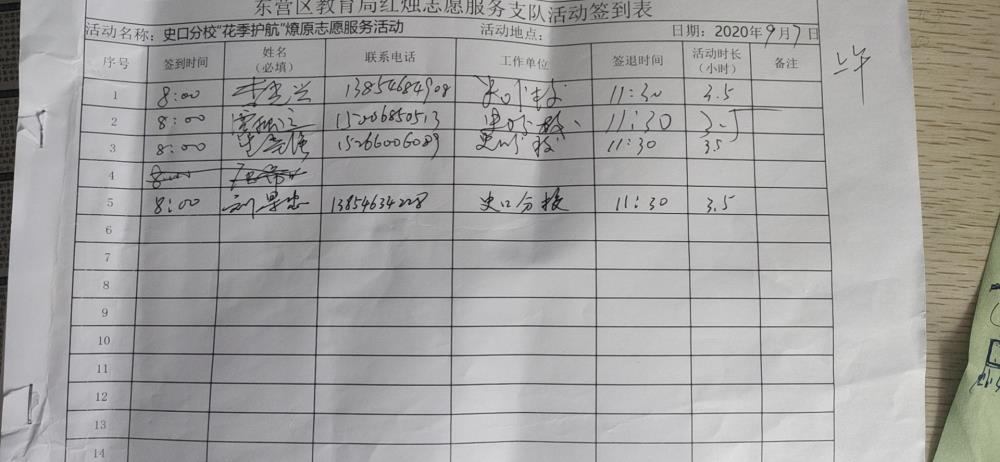 东营区教育局红烛志愿服务支队活动签到表
活动名称：史口分校“花季护航”燎原志愿服务活动 活动地点： 日期：2020年9月7日
序号 签到时间 姓名（必填） 联系电话 工作单位 签退时间 活动时长（小时） 备注
1 8:00 13854684908 11:30 3.5
2 8:00 15206850513 11:30 3.5
3 8:00 15266006089 11:30 35
4
5 8:00 13854634228 史口分校 11:30 3.5
6
7
8
9
10
11
12
13
14